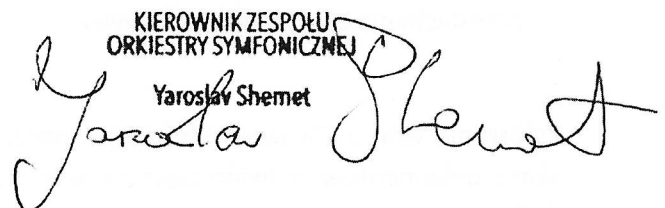 KIEROWNIK ZESPOŁU
ORKIESTRY SYMFONICZNEJ
Yaroslav Shemet
Yaroslav Shemet